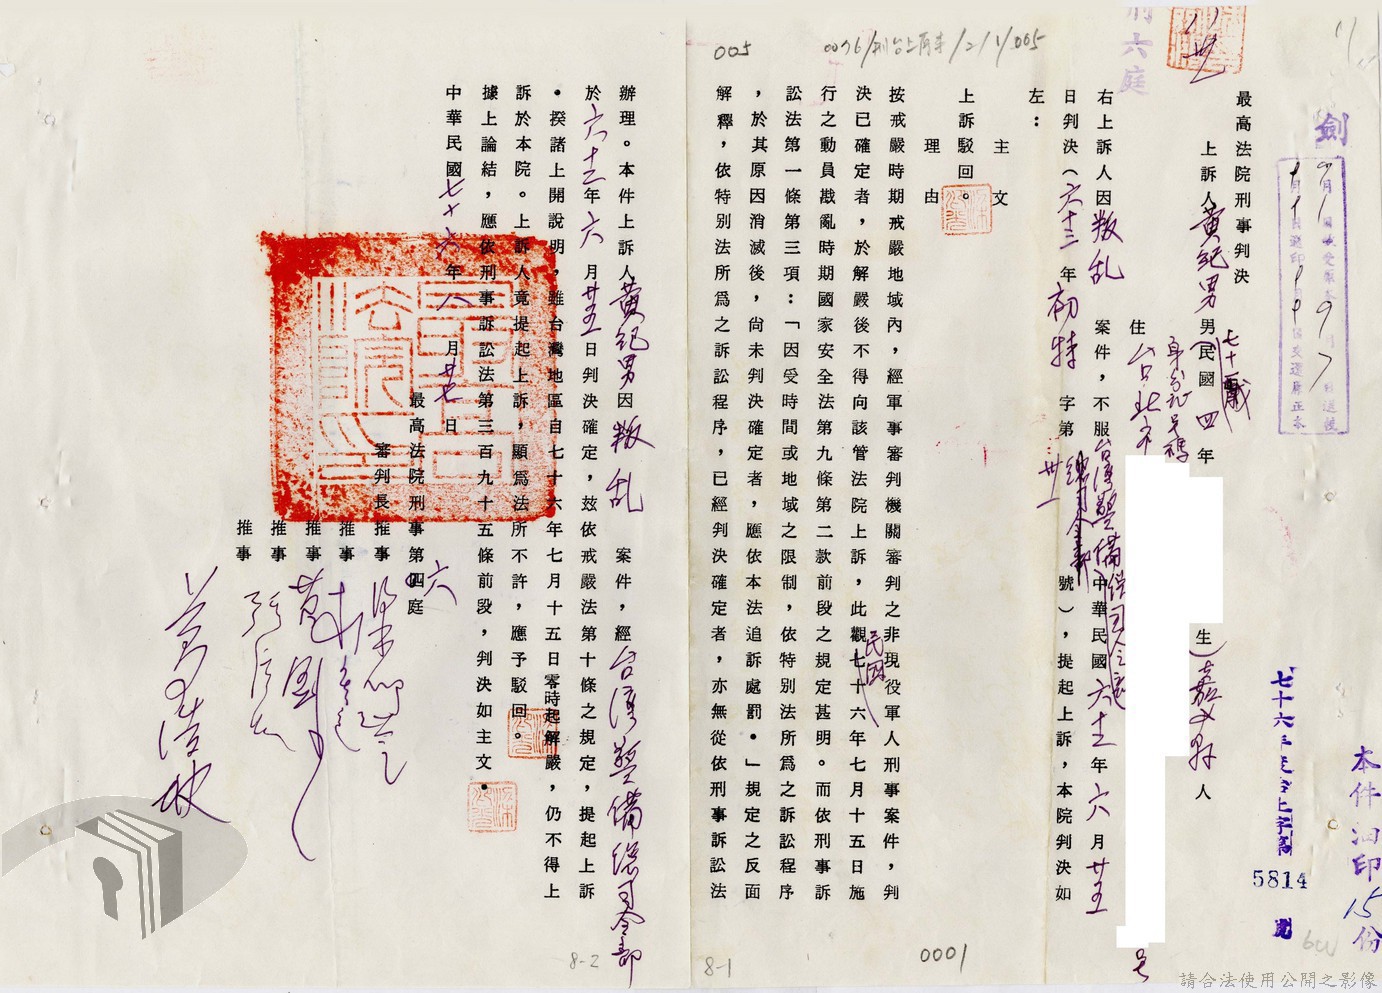 最高法院刑事判決
七十六年度台上字第5814號
上訴人黃紀男 男(民國四年 生)嘉義縣人
七十二歲
身分證號碼
住台北市 號
右上訴人因叛乱 案件,不服台灣警備總司令部中華民國六十三年六月廿五
日判決(六十三年初特 字第 廿一 號),提起上訴,本院判決如
左:
主 文
上訴駁回。
理 由
按戒嚴時期戒嚴地域內,經軍事審判機關審判之非現役軍人刑事案件,判
決已確定者,於解嚴後不得向該管法院上訴,此觀民國七十六年七月十五日施
行之動員戡亂時期國家安全法第九條第二款前段之規定甚明。而依刑事訴
訟法第一條第三項:「因受時間或地域之限制,依特別法所為之訴訟程序
,於其原因消滅後,尚未判決確定者,應依本法追訴處罰。」規定之反面
解釋,依特別法所為之訴訟程序,已經判決確定者,亦無從依刑事訴訟法
辦理。本件上訴人黃紀男因叛乱 案件,經台灣警備總司令部
於六十三年六月廿五日判決確定,茲依戒嚴法第十條之規定,提起上訴
。揆諸上開說明,雖台灣地區自七十六年七月十五日零時起解嚴,仍不得上
訴於本院。上訴人竟提起上訴,顯為法所不許,應予駁回。
據上論結,應依刑事訴訟法第三百九十五條前段,判決如主文。
中華民國七十六年八月廿七日
最高法院刑事第六庭
審判長推事
推事
推事
推事
推事
刑六庭
劍
本件油印15份
005
0076/刑台上再字/2/1/005
0001
8-1
8-2
請合法使用公開之影像